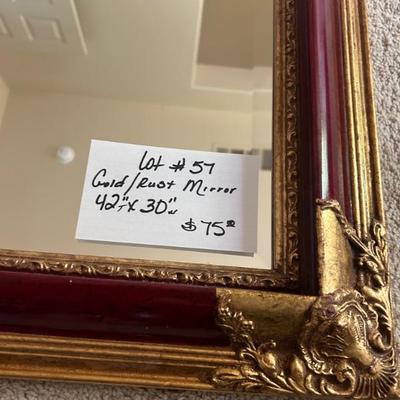 Lot #57
Gold/Rust Mirror
42"T x 30"W
$75.00